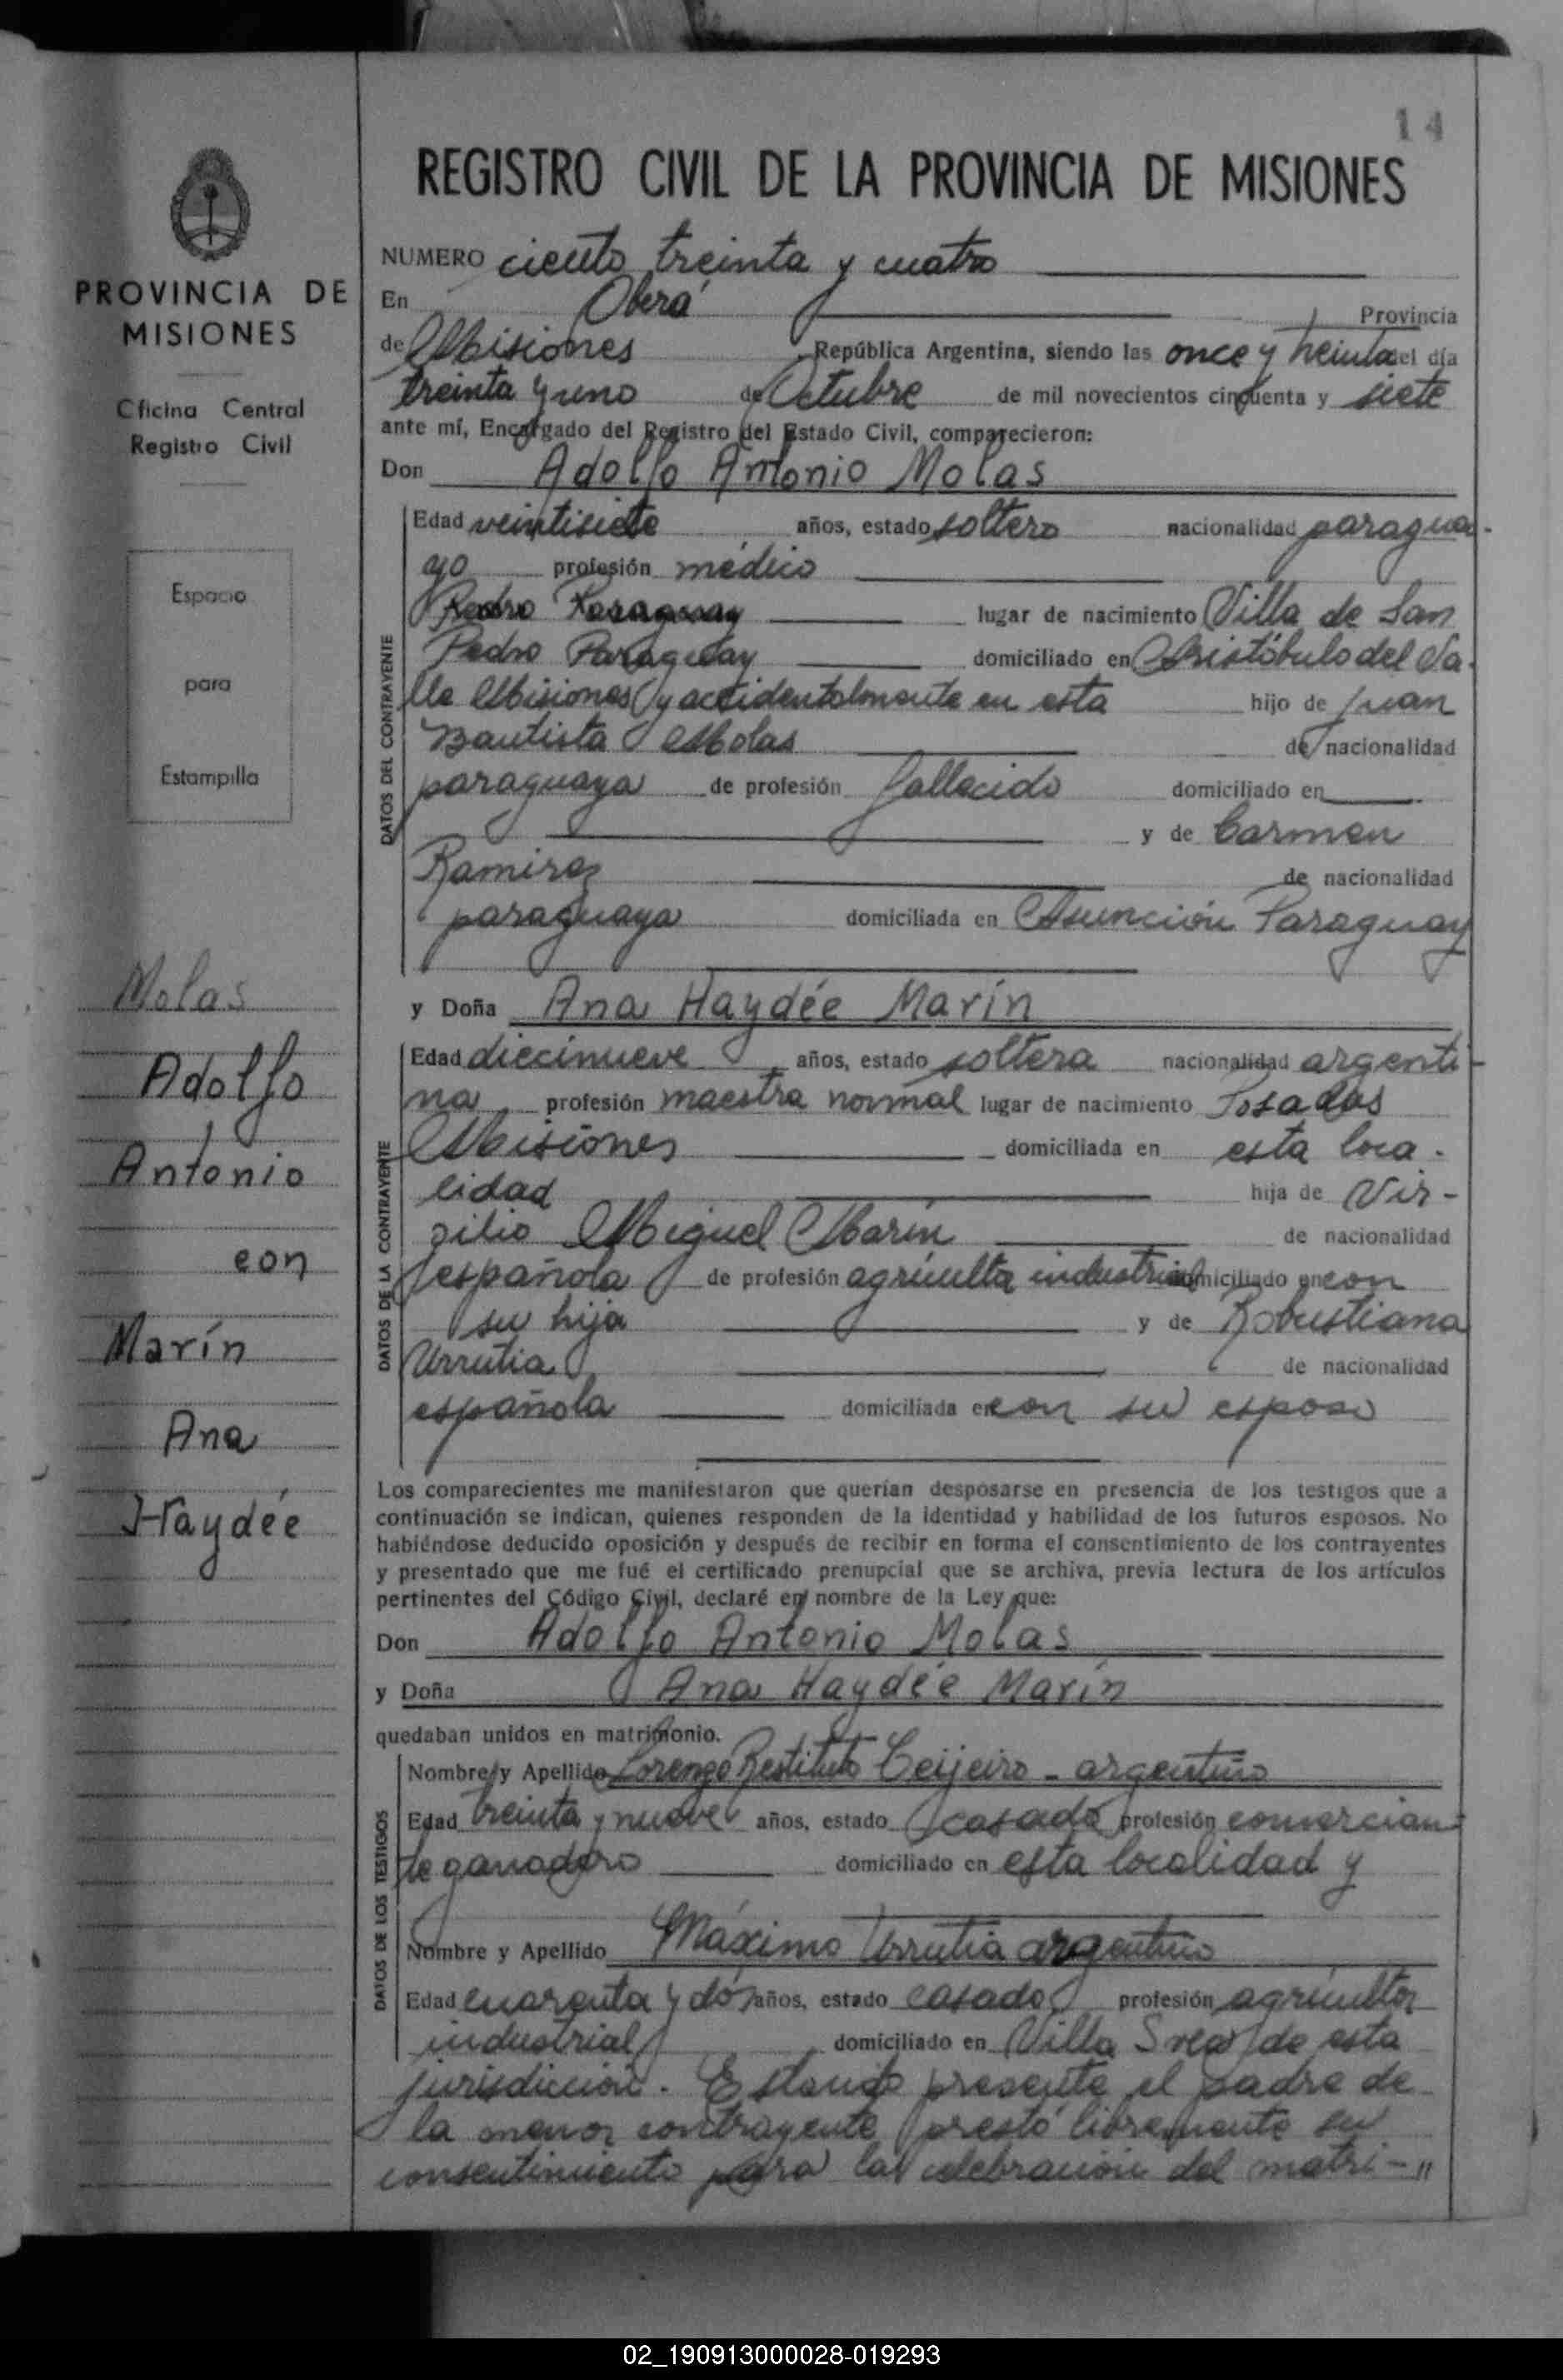 14
REGISTRO CIVIL DE LA PROVINCIA DE MISIONES
PROVINCIA DE
MISIONES
Oficina Central
Registro Civil
Espacio
para
Estampilla
Molas
Adolfo
Antonio
con
Marín
Ana
Haydée
NUMERO ciento treinta y cuatro
En Oberá Provincia
de Misiones República Argentina, siendo las once y treinta del día
treinta y uno de Octubre de mil novecientos cincuenta y siete
ante mí, Encargado del Registro del Estado Civil, comparecieron:
Don Adolfo Antonio Molas
DATOS DEL CONTRAYENTE
Edad veintisiete años, estado soltero nacionalidad paragua-
yo profesión médico
Pedro Paraguay lugar de nacimiento Villa de San
Pedro Paraguay domiciliado en Aristóbulo del Va-
lle Misiones y accidentalmente en esta hijo de Juan
Bautista Molas de nacionalidad
paraguaya de profesión fallecido domiciliado en
y de Carmen
Ramirez de nacionalidad
paraguaya domiciliada en Asunción Paraguay
y Doña Ana Haydée Marín
DATOS DE LA CONTRAYENTE
Edad diecinueve años, estado soltera nacionalidad argenti-
na profesión maestra normal lugar de nacimiento Posadas
Misiones domiciliada en esta loca-
lidad hija de Vir-
gilio Miguel Marín de nacionalidad
española de profesión agriculta industrial domiciliado en con
su hija y de Robustiana
Urrutia de nacionalidad
española domiciliada en con su esposo
Los comparecientes me manifestaron que querían desposarse en presencia de los testigos que a
continuación se indican, quienes responden de la identidad y habilidad de los futuros esposos. No
habiéndose deducido oposición y después de recibir en forma el consentimiento de los contrayentes
y presentado que me fué el certificado prenupcial que se archiva, previa lectura de los artículos
pertinentes del Código Civil, declaré en nombre de la Ley que:
Don Adolfo Antonio Molas
y Doña Ana Haydée Marín
quedaban unidos en matrimonio.
DATOS DE LOS TESTIGOS
Nombre y Apellido Lorenzo Restituto Teijeiro - argentino
Edad treinta y nueve años, estado casado profesión comercian-
te ganadero domiciliado en esta localidad y
Nombre y Apellido Máximo Urrutia argentino
Edad cuarenta y dós años, estado casado profesión agricultor
industrial domiciliado en Villa Svea de esta
jurisdicción. Estando presente el padre de
la menor contrayente prestó libremente su
consentimiento para la celebración del matri-"
02_190913000028-019293